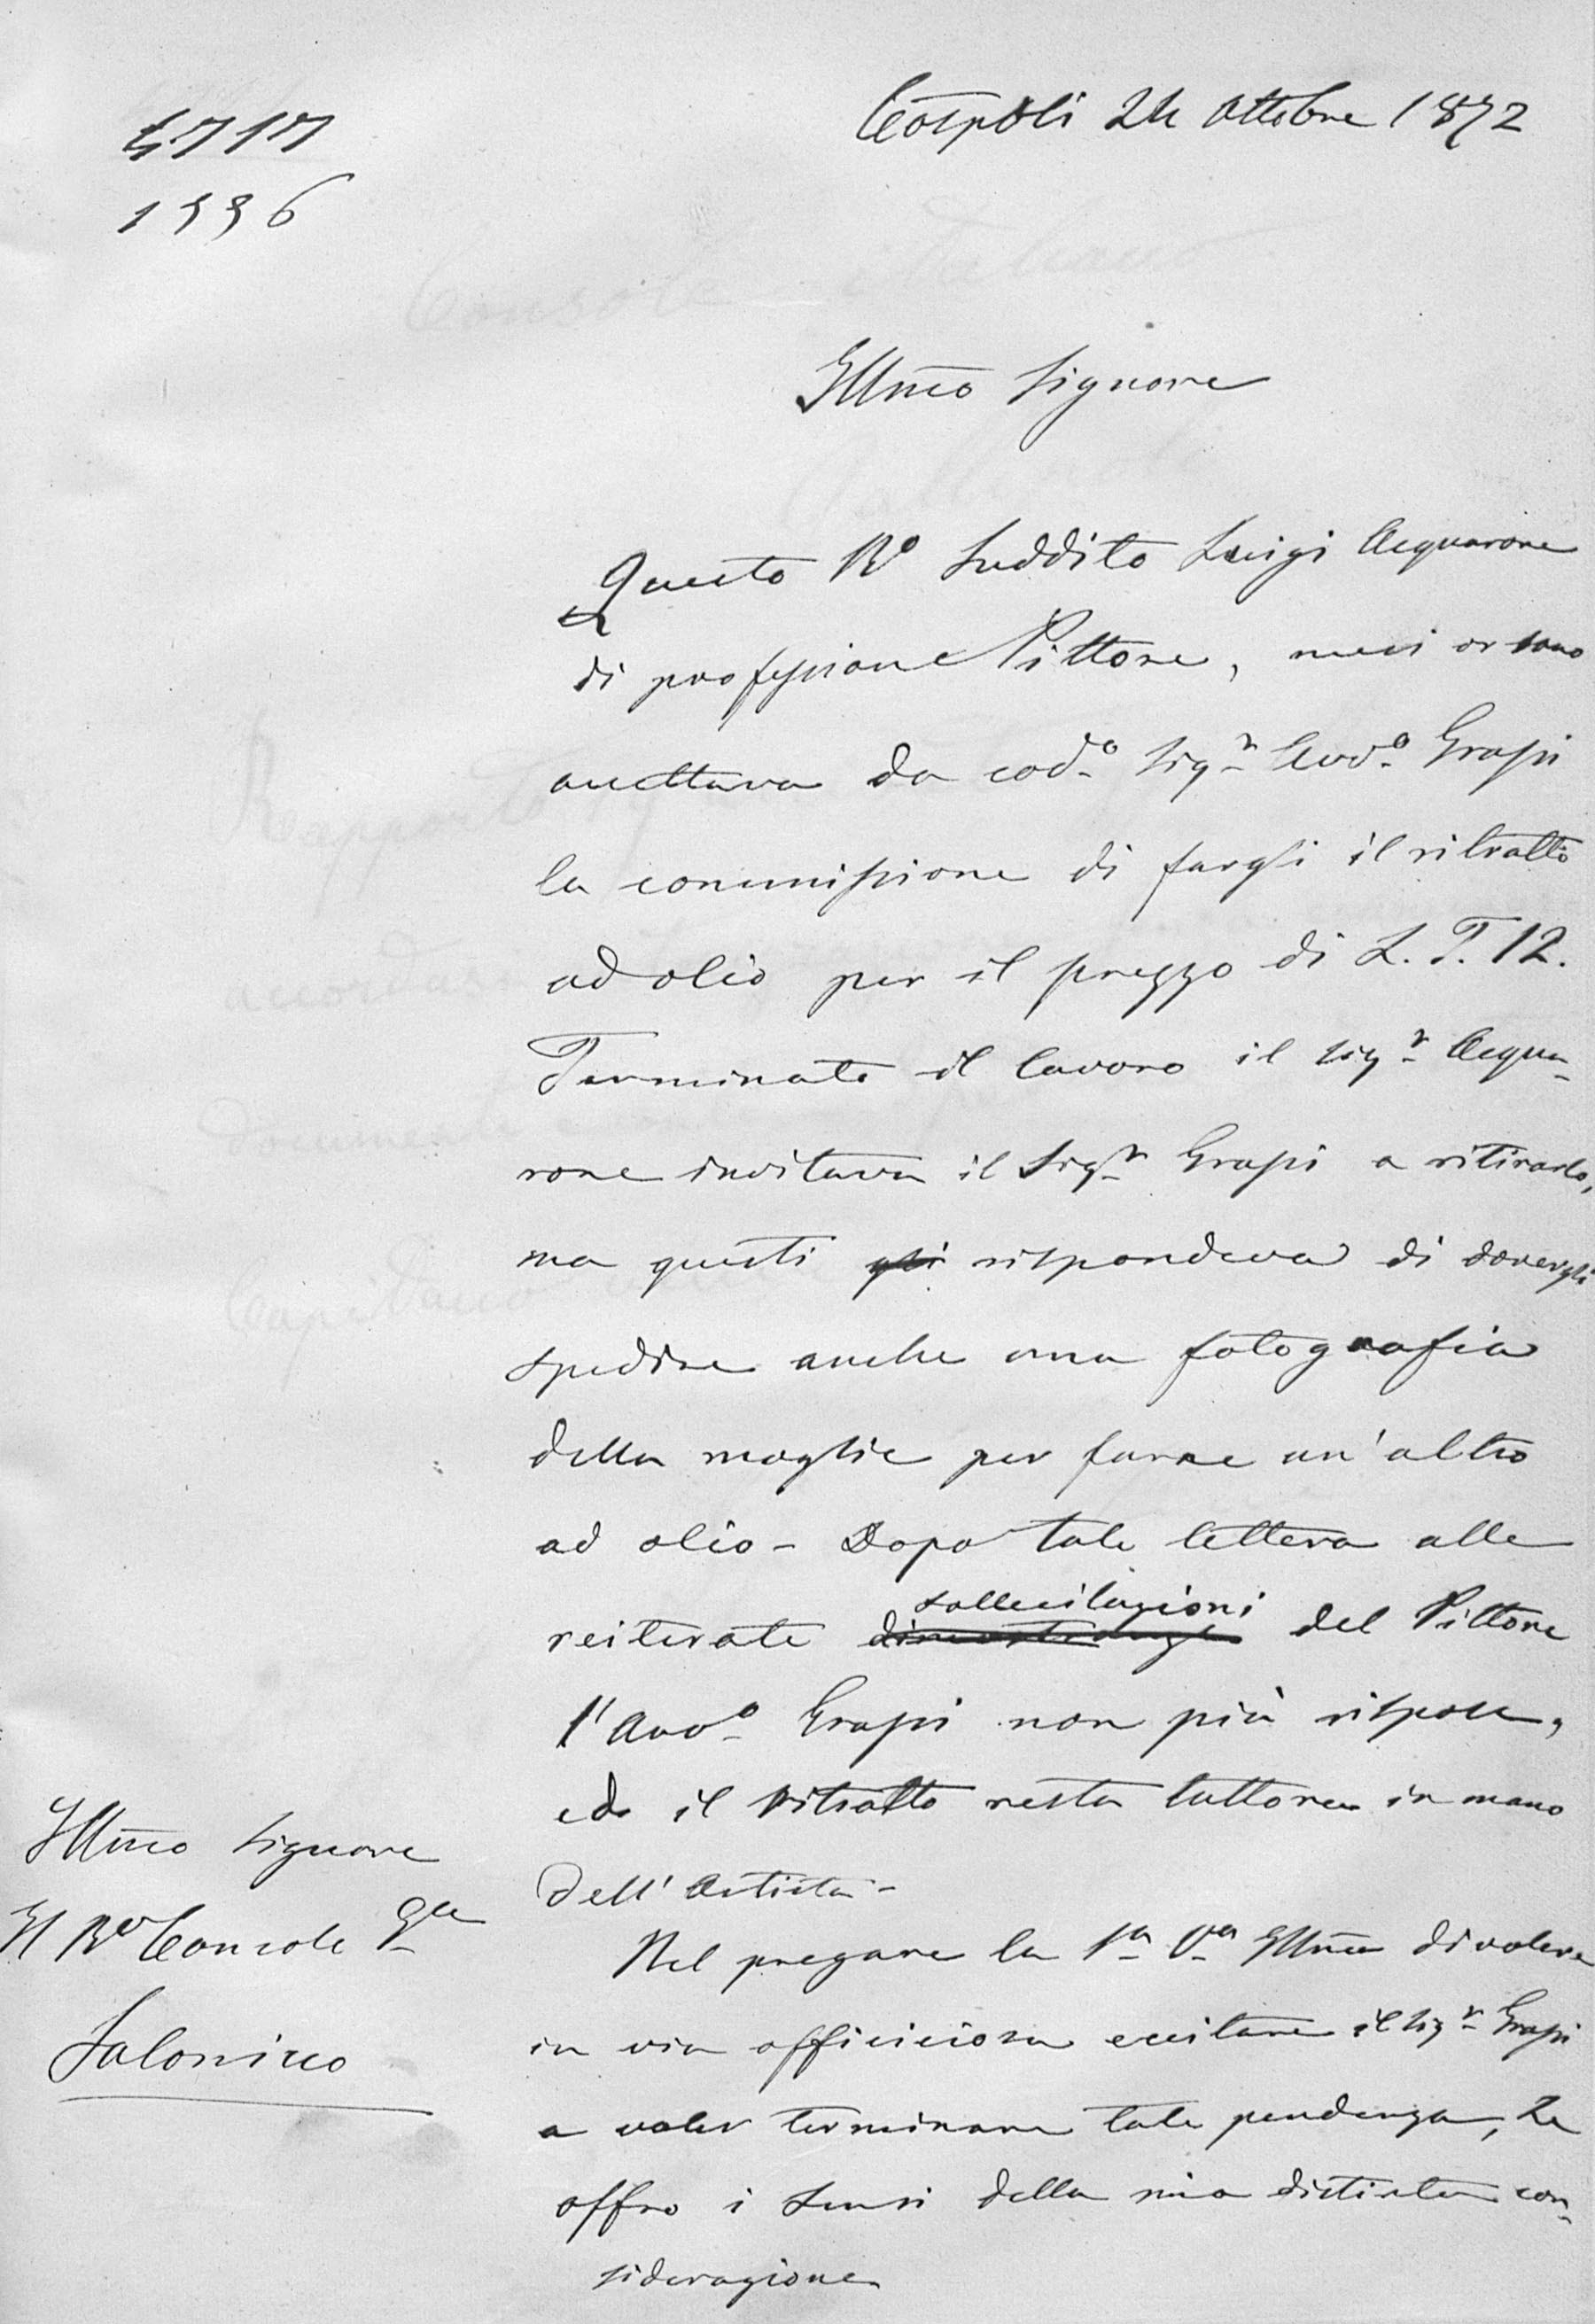 4717
1996
Cospoli 24 Ottobre 1872
Illmo Signore
Questo Ro Suddito Luigi Acquarone
di professione Pittore, mesi or sono
accettava da codo Sigr Avvo Grassi
la commissione di fargli il ritratto
ad olio per il prezzo di L. T. 12.
Terminato il lavoro il Sigr Acqua-
rone invitava il Sigr Grassi a ritirarlo,
ma questi gli rispondeva di dovergli
spedire anche una fotografia
della moglie per farne un'altro
ad olio - Dopo tale lettera alle
sollecitazioni
reiterate del Pittore
l'Avvo Grassi non più rispose,
ed il ritratto resta tuttora in mano
dell'Artista -
Nel pregare la Sa Va Illma di volere
in via officiciosa eccitare il Sigr Grassi
a voler terminare tale pendenza, Le
offro i sensi della mia distinta con-
siderazione
Illmo Signore
Il Ro Console Gle
Salonicco